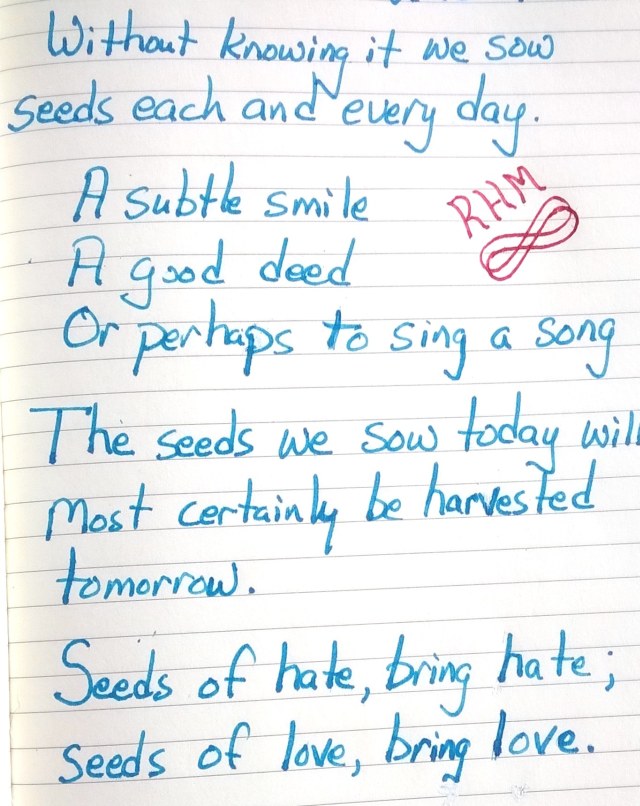 Without knowing it we sow
seeds each and every day.
A subtle smile
RHM
A good deed
Or perhaps to sing a song
The seeds we sow today will
Most certainly be harvested
tomorrow.
Seeds of hate, bring hate;
seeds of love, bring love.